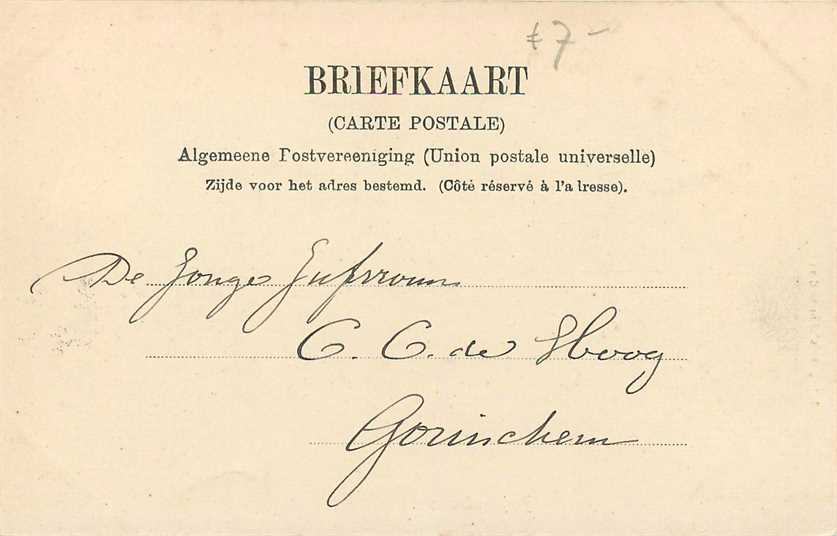 € 7-
BRIEFKAART
(CARTE POSTALE)
Algemeene Postvereeniging (Union postale universelle)
Zijde voor het adres bestemd. (Côté réservé à l'a resse).
De Jonge Jufvrouw
C. C. de Hoog
Gorinchem